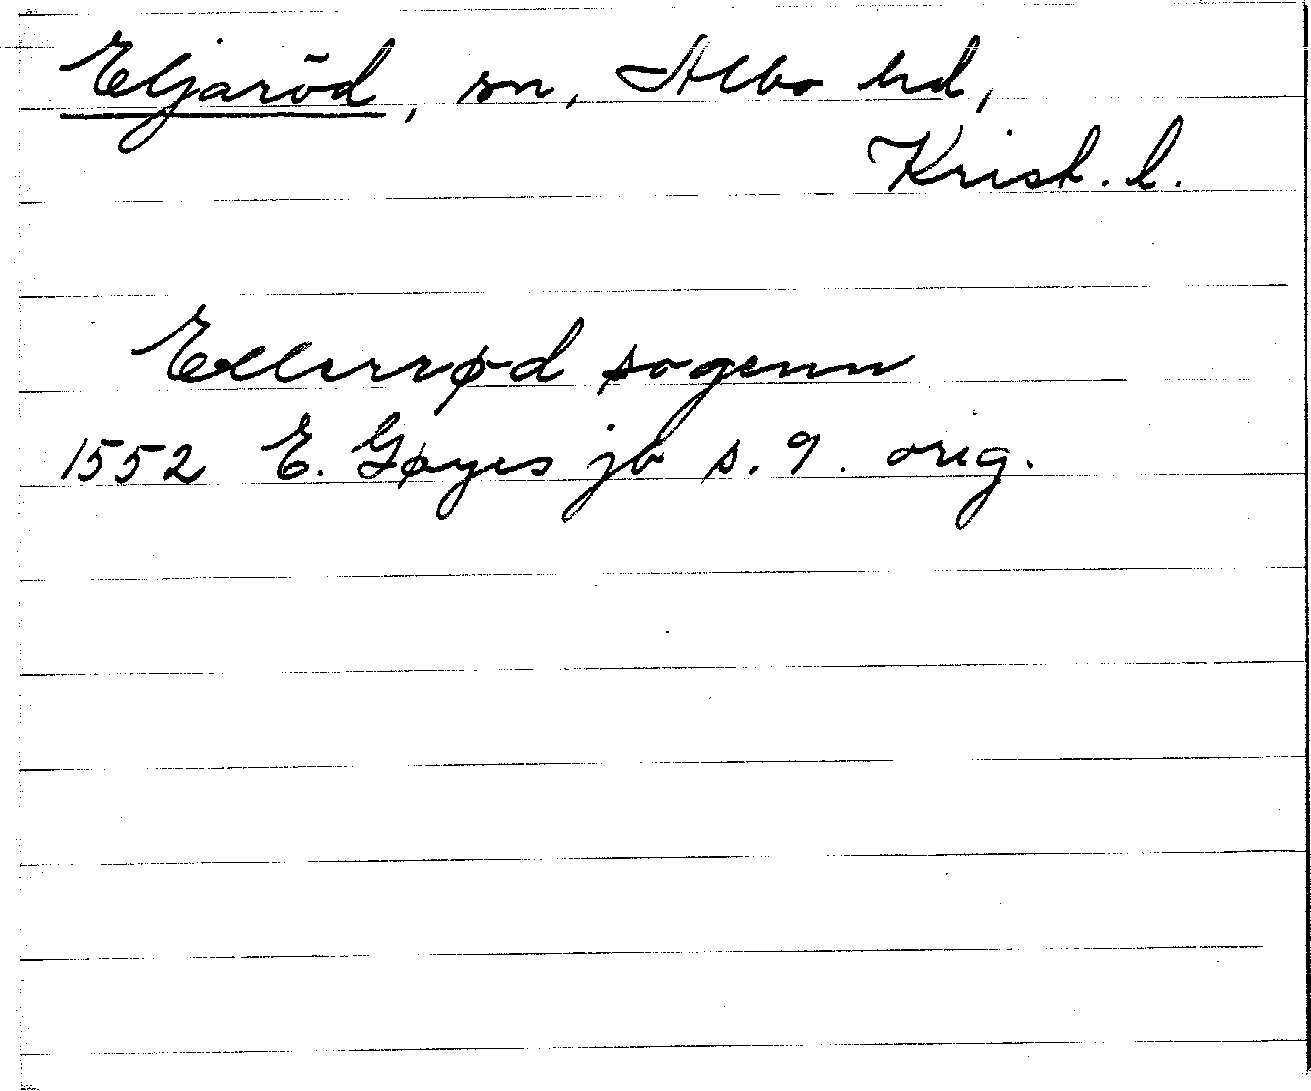 Eljaröd, sn, Albo hd,
Krist. l.
Ellerrød sogenn
1552 E. Gøyes jb s. 9. orig.